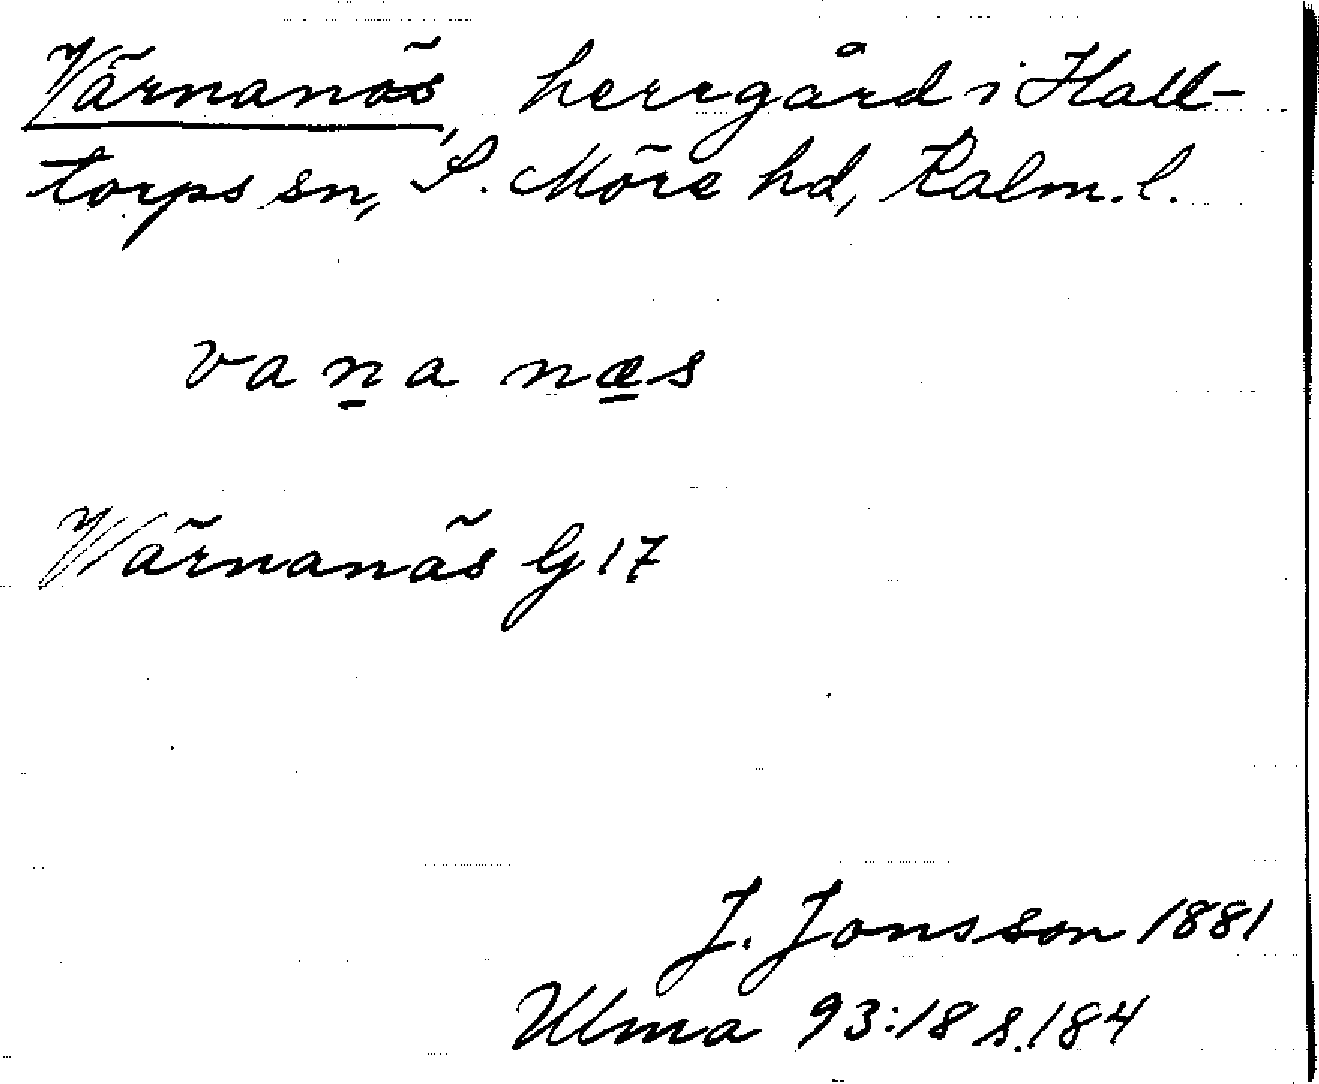 Värnanäs, herrgård i Hall-
torps sn, S. Möre hd, Kalm. l.
va n̲a næ̲s
Wärnanäs G 17
J. Jonsson 1881
Ulma 93:18 s. 184